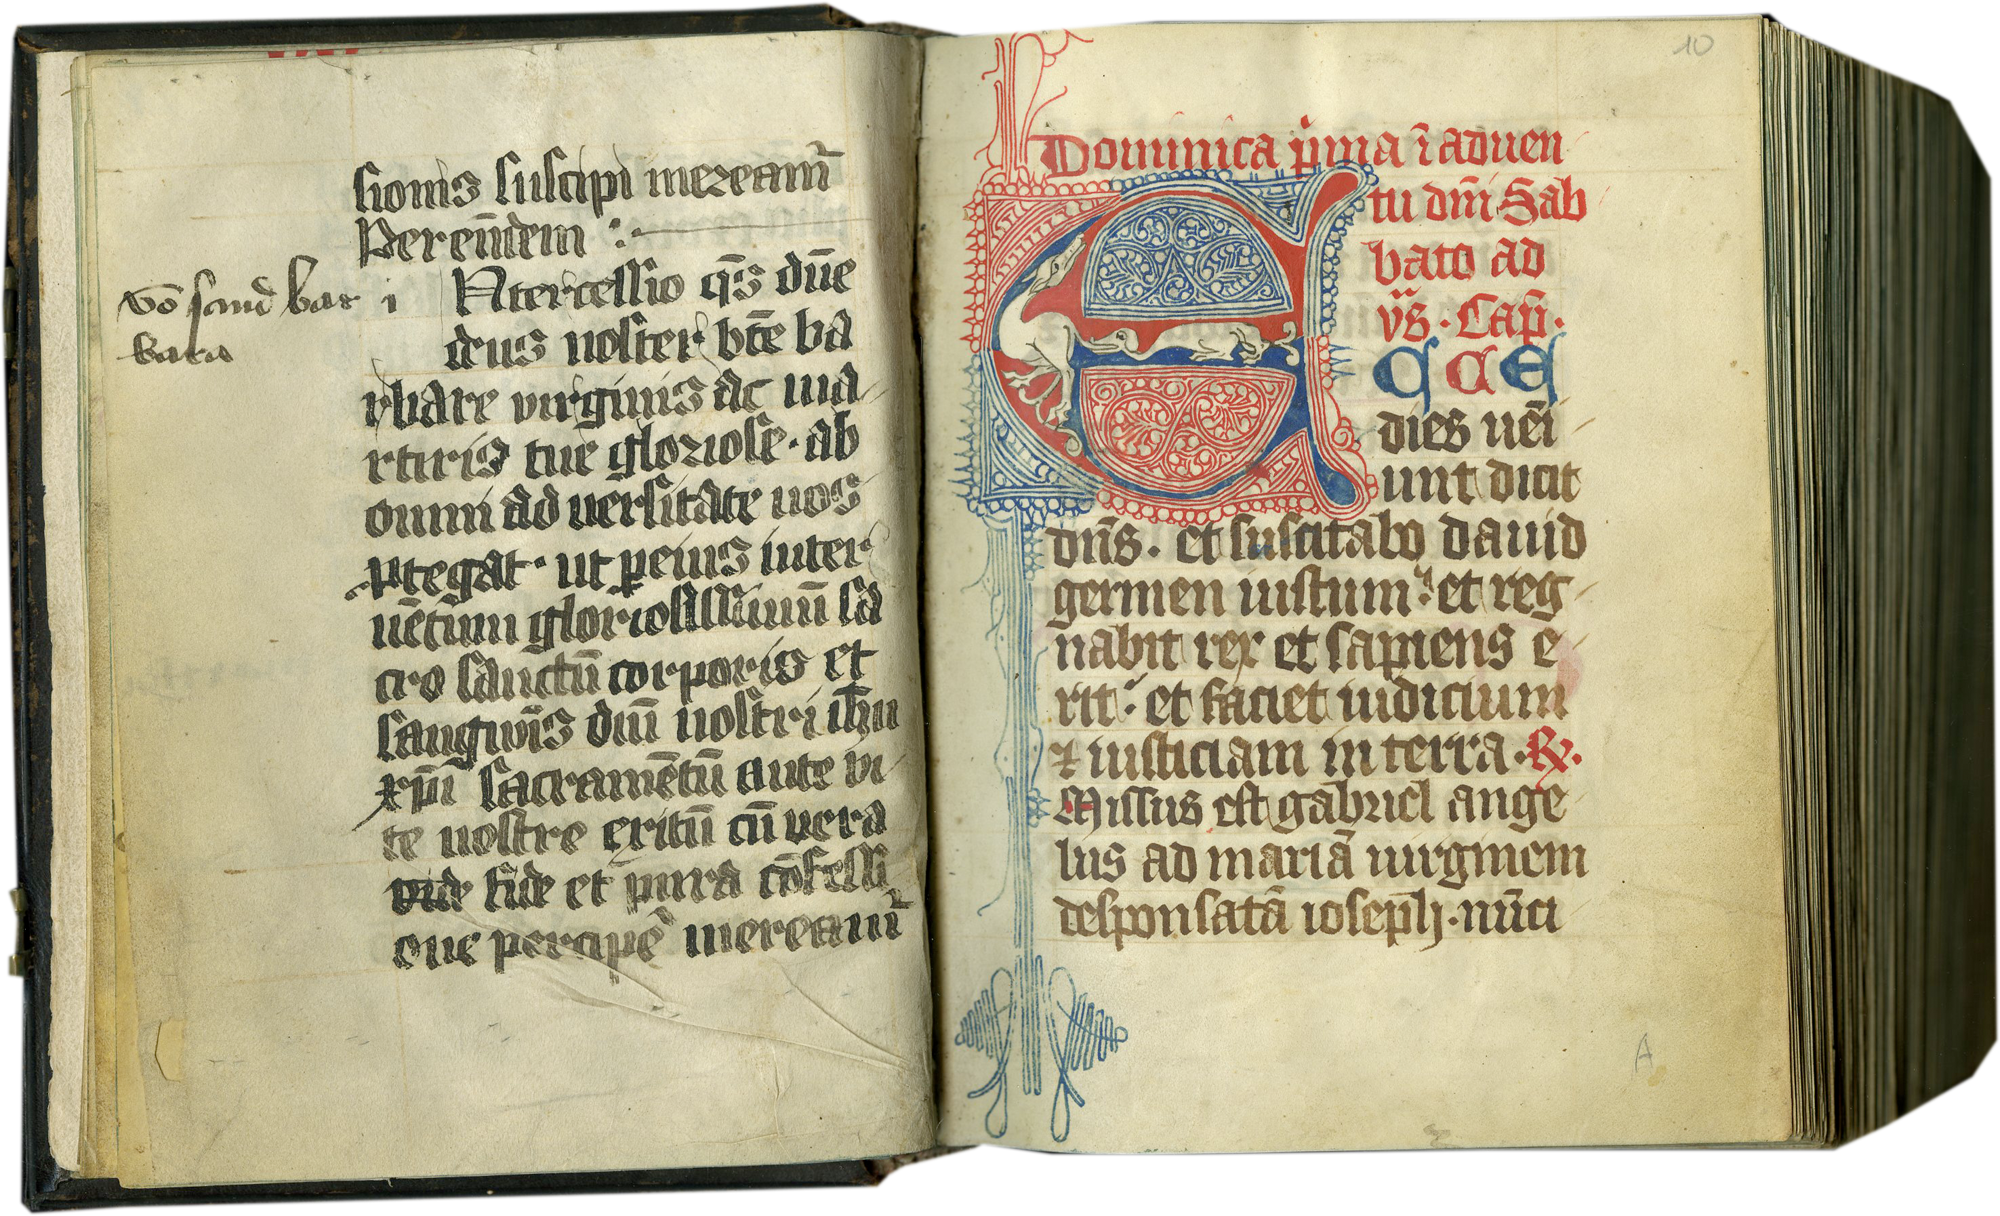 sionis suscipi mereamr̄
Per eūdem :
vō sand bar
bara
i Ntercessio q̄s dn̄e
deus noster bt̄e ba
rbare virginis ac ma
rtiris tue gloriose · ab
omni ad uersitate nos
ptegat · ut p eius inter
uētum gloriosissimū sa
cro sanctū corporis et
sangwīs dn̄i nostri ih̄u
xp̄i sacramētū ante vi
te nostre exitū cū vera
fide et pura cōfessi
one percipe mereamr̄
10
Dominica p̄ma ī aduen
tu dn̄i Sab
bato ad
vs̄ · Cap̄ ·
E C C E
dies uēi
unt dicit
dn̄s · et suscitabo dauid
germen iustum : et reg
nabit rex et sapiens e
rit : et faciet iudicium
⁊ iusticiam in terra · R̸ ·
Missus est gabriel ange
lus ad mariā uirginem
desponsatā ioseph · nūci
A